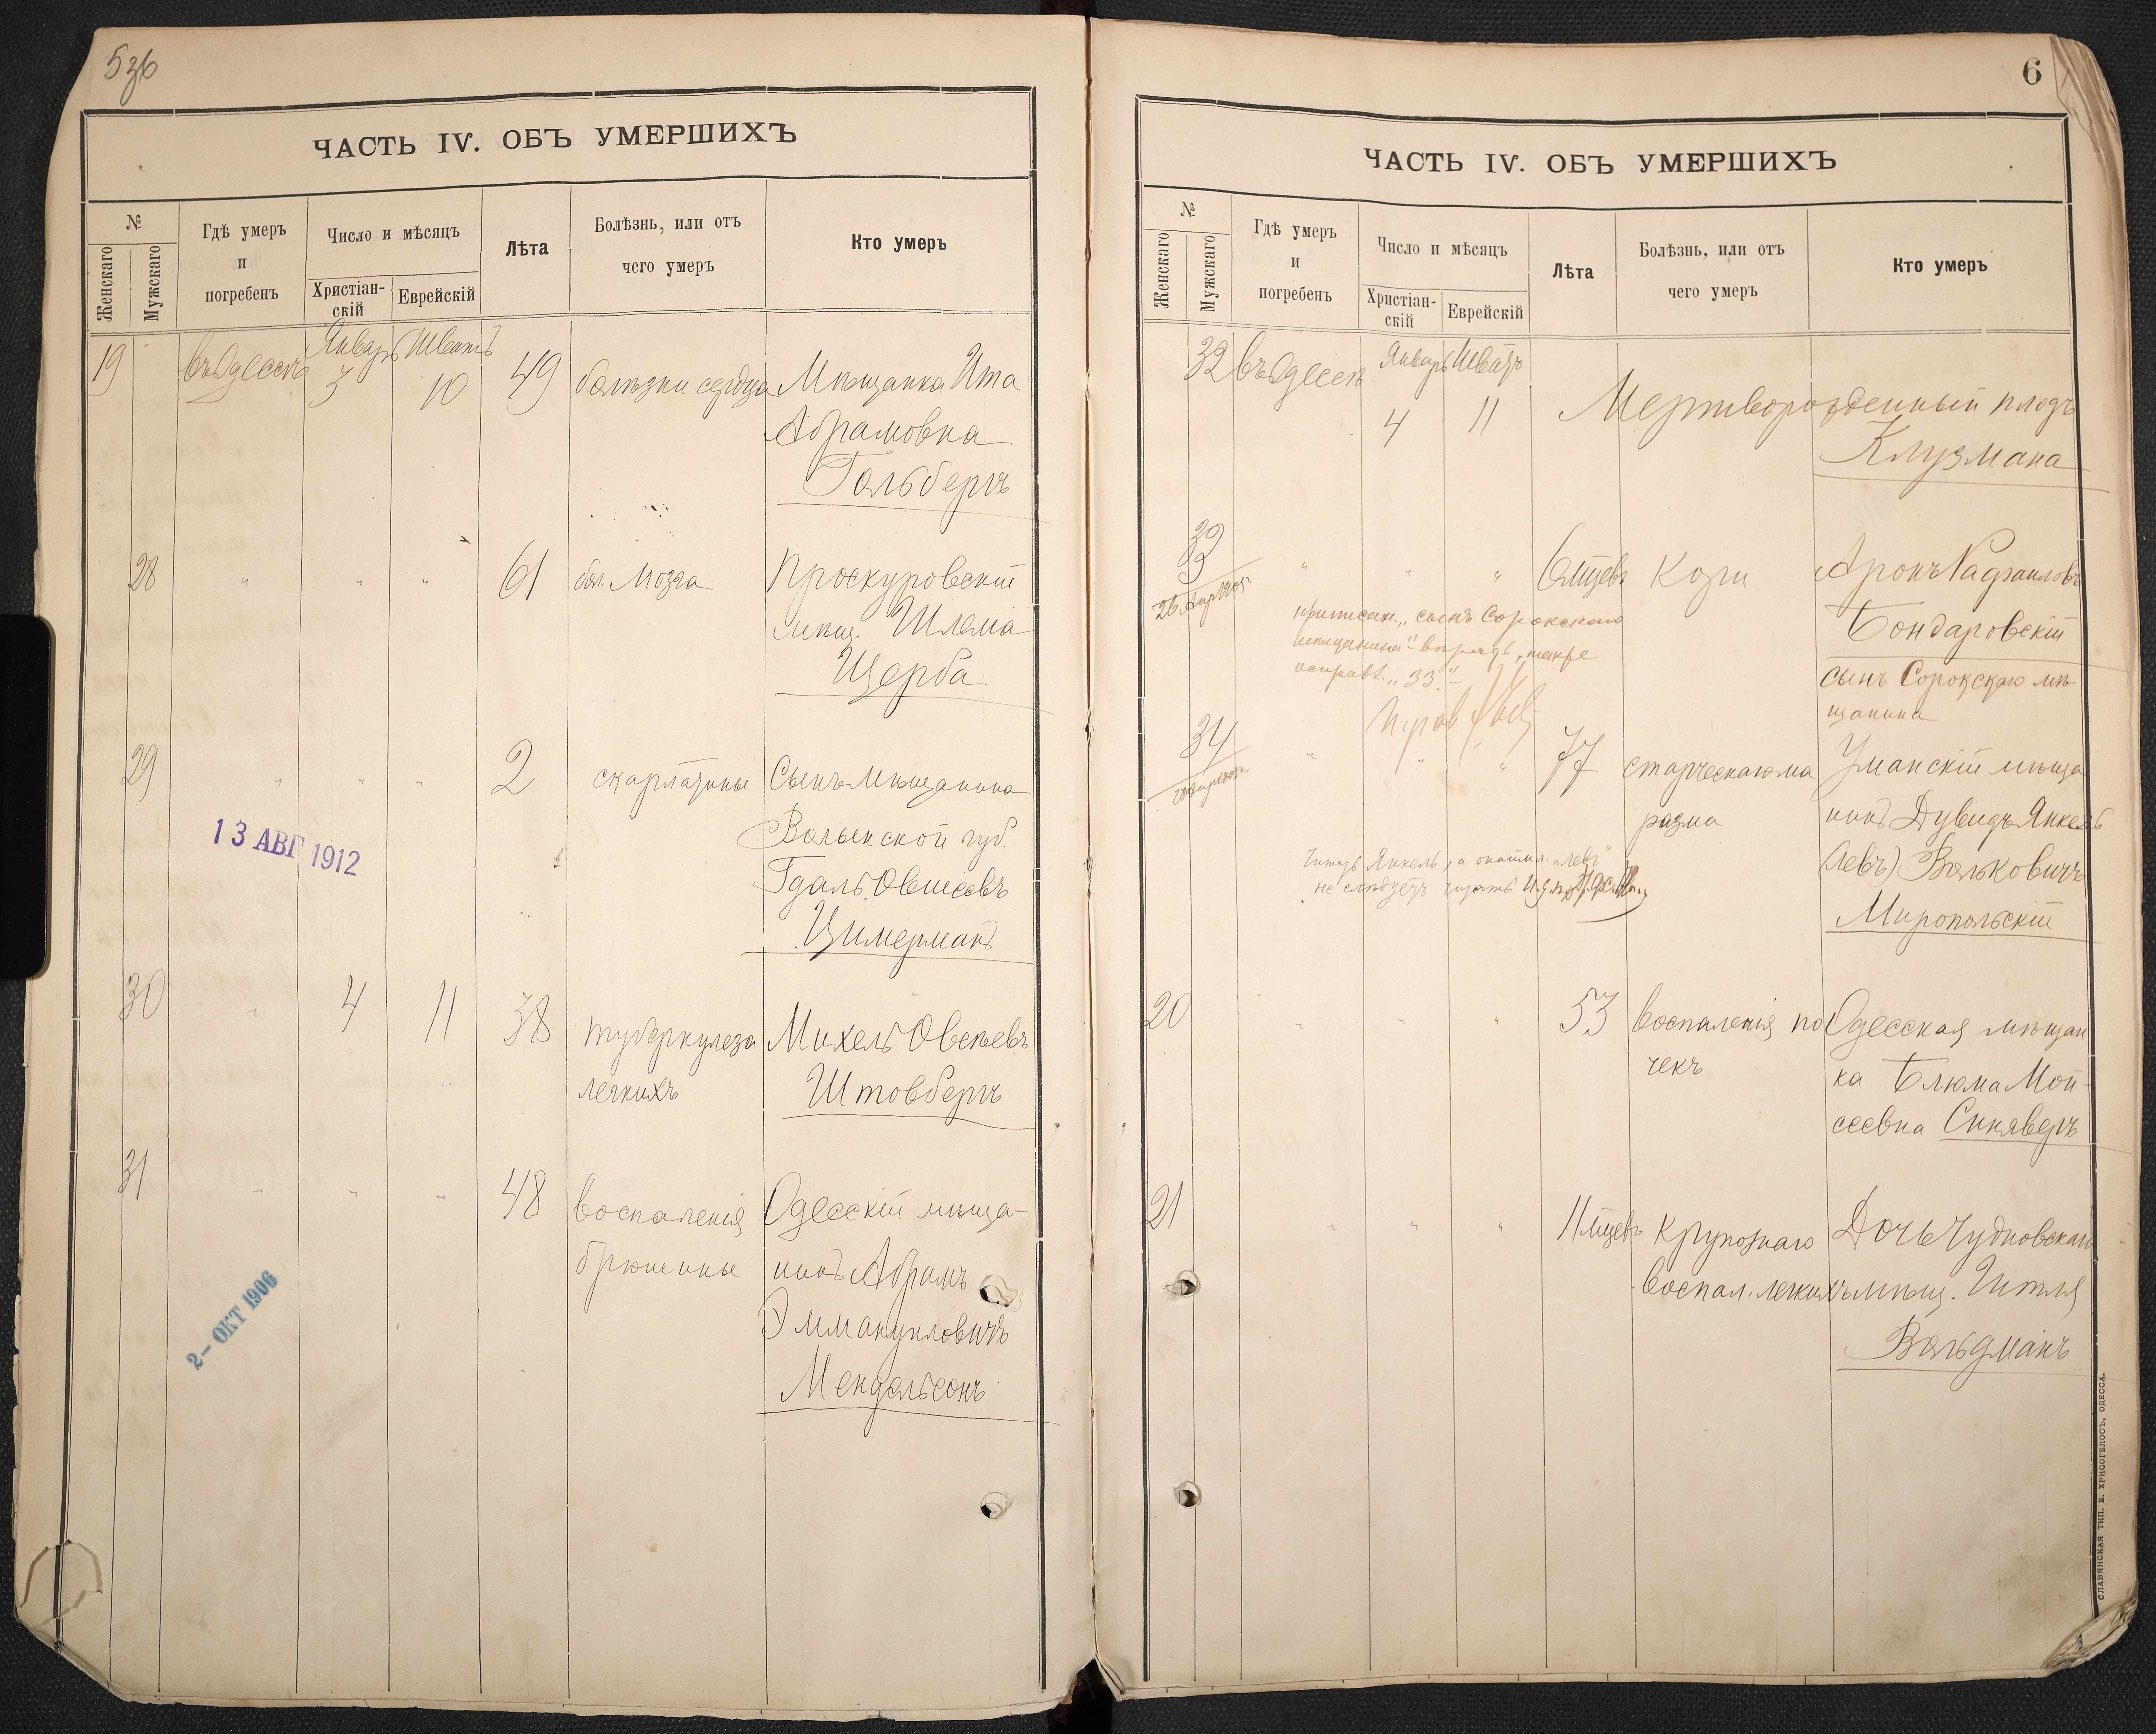 ЧАСТЬ IV. ОБЪ УМЕРШИХЪ
№
Женскаго
Мужскаго
Гдѣ умеръ
и
погребенъ
Число и мѣсяцъ
Христіан-
скій
Еврейскій
Лѣта
Болѣзнь, или отъ
чего умеръ
Кто умеръ
19 въ Одессѣ Январь 3 Шватъ 10 49 болѣзни сердца Мѣщанка Ита
Абрамовна
Гольбергъ
28 " " " 61 бол. мозга Проскуровскій
мѣщ. Шлема
Щерба
29 " " " 2 скарлатины Сынъ мѣщанина
Волынской губ.
Гдаль Овшіевъ
Цимерманъ
13 АВГ 1912
30 " 4 11 38 туберкулеза Михель Овсѣевъ
легкихъ Штовбергъ
31 " " " 48 воспаленія Одесскій мѣща-
брюшины нинъ Абрамъ
Эммануиловичъ
Мендельсонъ
2- ОКТ 1906
6
ЧАСТЬ IV. ОБЪ УМЕРШИХЪ
№
Женскаго
Мужскаго
Гдѣ умеръ
и
погребенъ
Число и мѣсяцъ
Христіан-
скій
Еврейскій
Лѣта
Болѣзнь, или отъ
чего умеръ
Кто умеръ
32 въ Одессѣ Январь 4 Шватъ 11 Мертворожденный плодъ
Клузмана
33 " " " 6 мцевъ Кори Аронъ Рафаиловъ
Бондаровскій
сынъ Сорокскаго мѣ-
щанина
приписан. „сынъ Сорокскаго
мѣщанина"
исправл. „33."
34 " " " 77 старческаго ма Уманскій мѣща
разма нинъ Дувидъ Янкель
(Левъ) Вольковичъ
Миропольскій
Читать Янкель, а „левъ"
не слѣдуетъ читать
20 " " " 53 воспаленія по Одесская мѣщан
чекъ ка Блюма Мой-
сеевна Синяверъ
21 " " " 11 мцевъ крупознаго Дочь Чудновскаго
воспал. легкихъ мѣщ. Итля
Вольдманъ
СЛАВЯНСКАЯ ТИП. Е. ХРИСОГЕЛОСЪ, ОДЕССА.